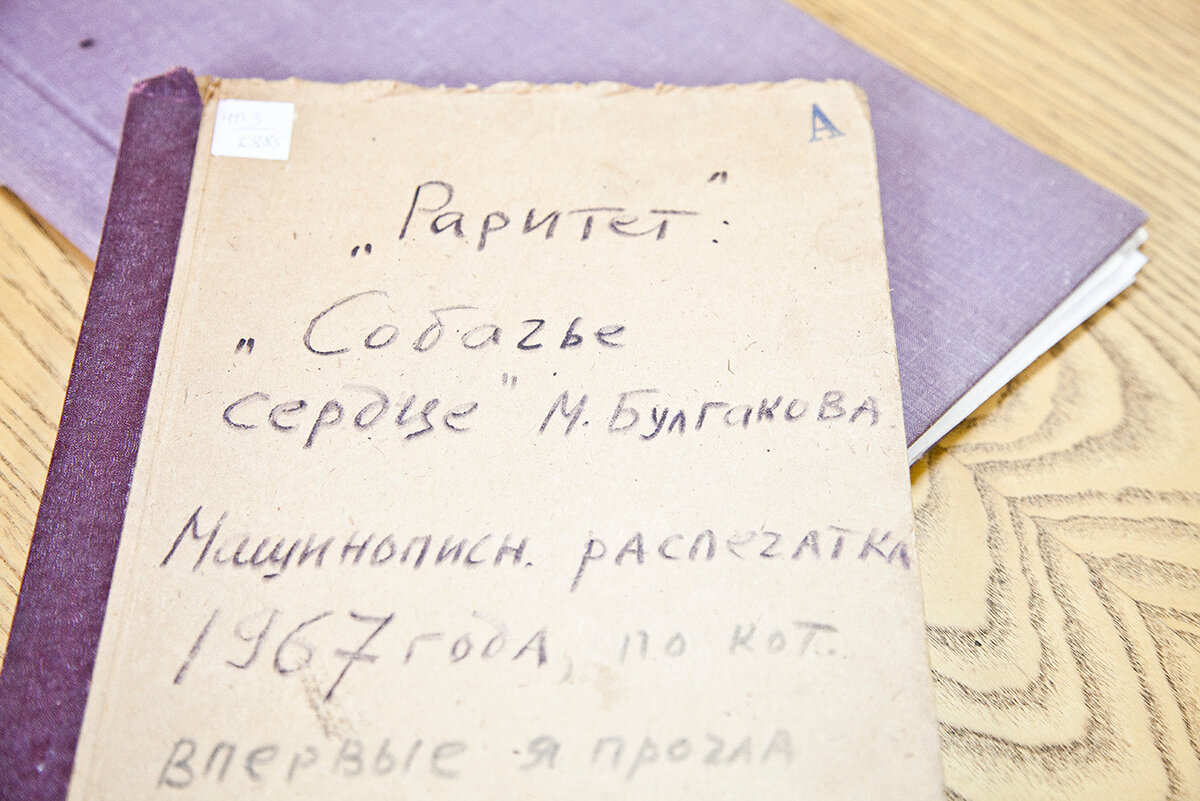 А
„Раритет":
„Собачье
сердце" М. Булгакова.
Машинописн. распечатка
1967 года, по кот.
впервые я прочла